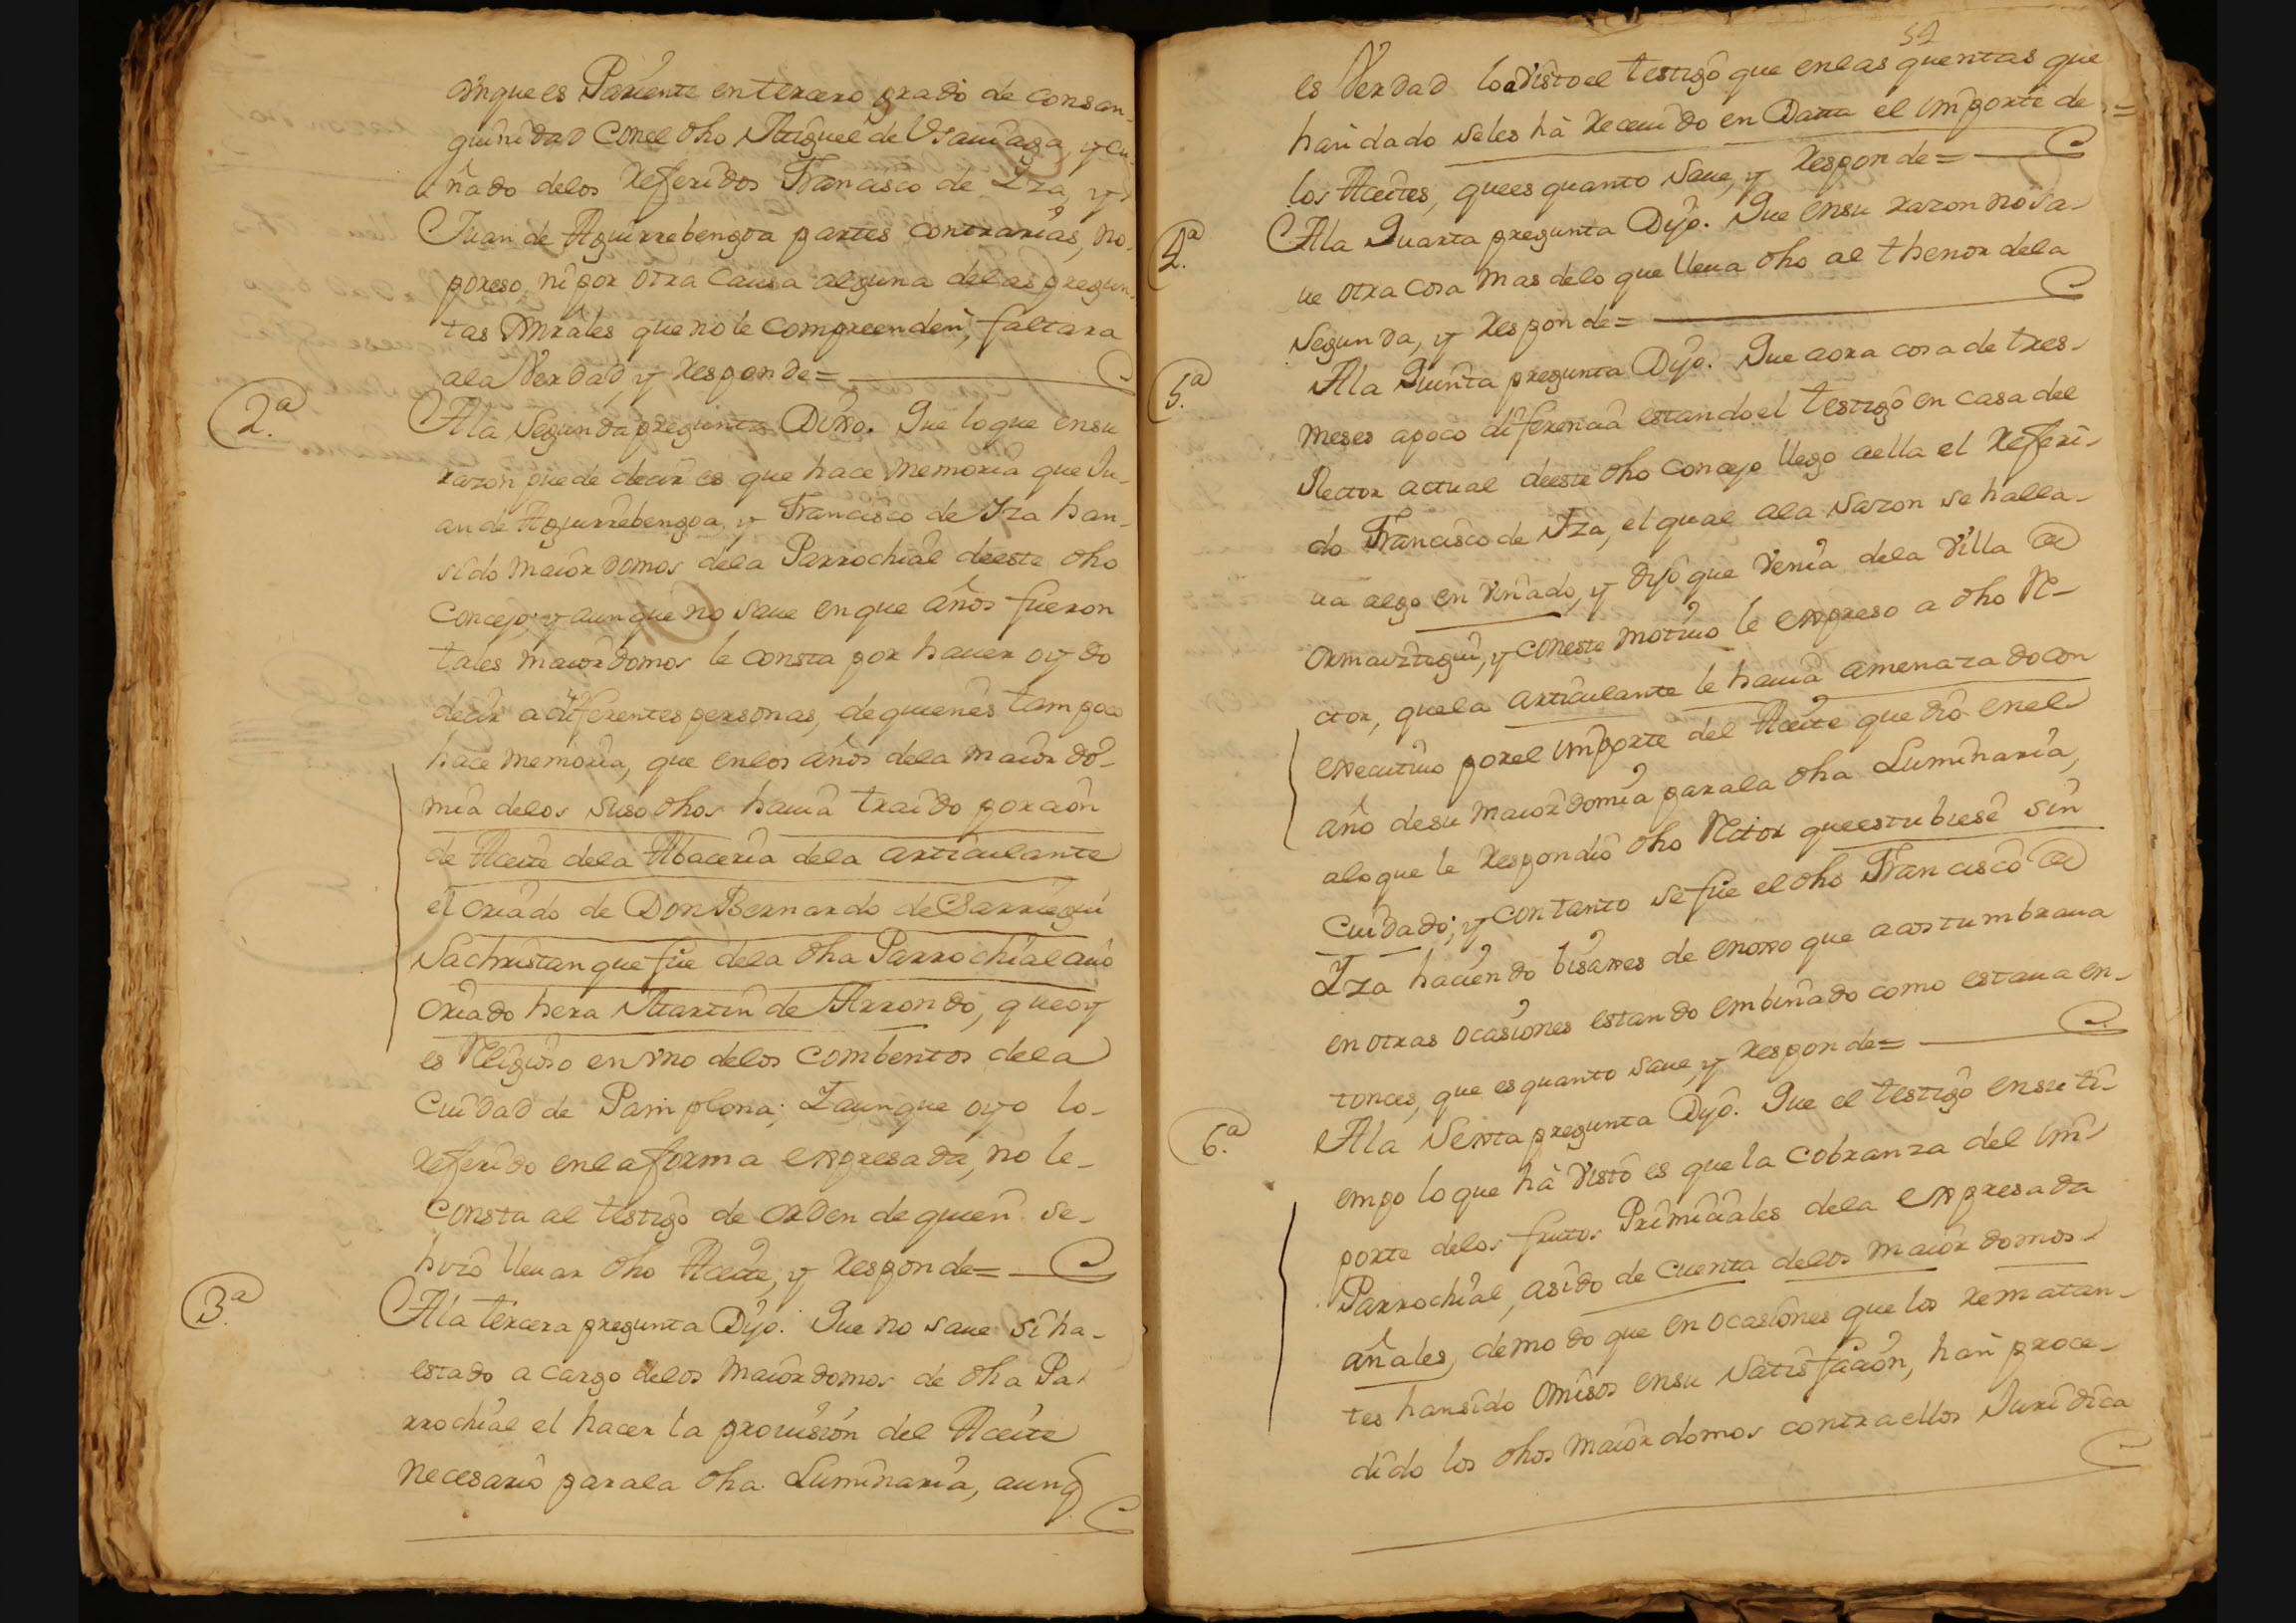 aunque es Pariente en tercero grado de consan-
guinidad con el dho Miguel de Usauiaga, y cu-
ñado delos Referidos Francisco de Yza, y
Juan de Aguirrebengoa partes contrarias, no-
por eso, ni por otra Causa alguna delas pregun-
tas Genrales que no le Compreenden, faltara
ala Verdad, y Responde=
2.ª
Ala Segunda pregunta Dixo. Que lo que ensu
razon puede decir es que hace memoria que Ju-
an de Aguirrebengoa, y Francisco de Yza han-
sido maiordomos dela Parrochial deeste dho
Concejo; y aunque no saue en que años fueron
tales maiordomos le consta por hauer oydo
decir a diferentes personas, de quienes tampoco
hace memoria, que enlos años dela maiordo-
mia delos suso dhos hauia traido porcion
de Aceite dela Abaceria dela articulante
el criado de Don Bernardo de Sarriegui
Sachristan que fue dela dha Parrochial cuio
criado hera Martin de Arrondo, que oy
es Religioso en vno delos Combentos dela
Ciudad de Pamplona; Y aunque oyo lo-
Referido enla forma expresada, no le-
Consta al testigo de orden de quien se-
hizo lleuar dho Aceite, y Responde=
3.ª
Ala tercera pregunta Dijo. Que no saue si ha-
estado a cargo delos maiordomos de dha Pa-
rrochial el hacer la prouision del Aceite
necesario parala dha Luminaria, aunq
52
es Verdad loa visto el testigo que enlas quentas que
han dado seles hà Receuido en Datta el importe de=
los Aceites, que es quanto saue, y Responde=
4.ª
Ala Quarta pregunta Dijo. Que ensu razon no sa-
ue otra cosa mas delo que lleua dho al thenor dela
Segunda, y Responde=
5.ª
Ala Quinta pregunta Dijo. Que aora cosa de tres-
meses apoco diferencia estando el testigo en casa del
Rector actual deeste dho Concejo llego aella el Referi-
do Francisco de Yza, el qual ala sazon se halla-
ua algo en vinado, y dijo que venia dela Villa de
Ormaiztegui, y coneste motiuo le expreso a dho Re-
ctor, quela articulante le hauia amenazado con
executiuo porel importe del Aceite que dio enel
año desu maiordomia parala dha Luminaria,
alo que le Respondio dho Rector que estubiese sin
Cuidado; y con tanto se fue el dho Francisco de
Yza haciendo bisaxes de enoxo que acostumbraua
en otras ocasiones estando embinado como estaua en-
tonces, que es quanto saue, y Responde=
6.ª
Ala Sexta pregunta Dijo. Que el testigo ensu ti-
empo lo que hà visto es que la cobranza del im-
porte delos frutos Primiciales dela expresada
Parrochial, asido de cuenta delos maiordomos
añales, demodo que en ocasiones que los rematan-
tes hansido omisos ensu satisfacion, han proce-
dido los dhos maiordomos contra ellos Juridica